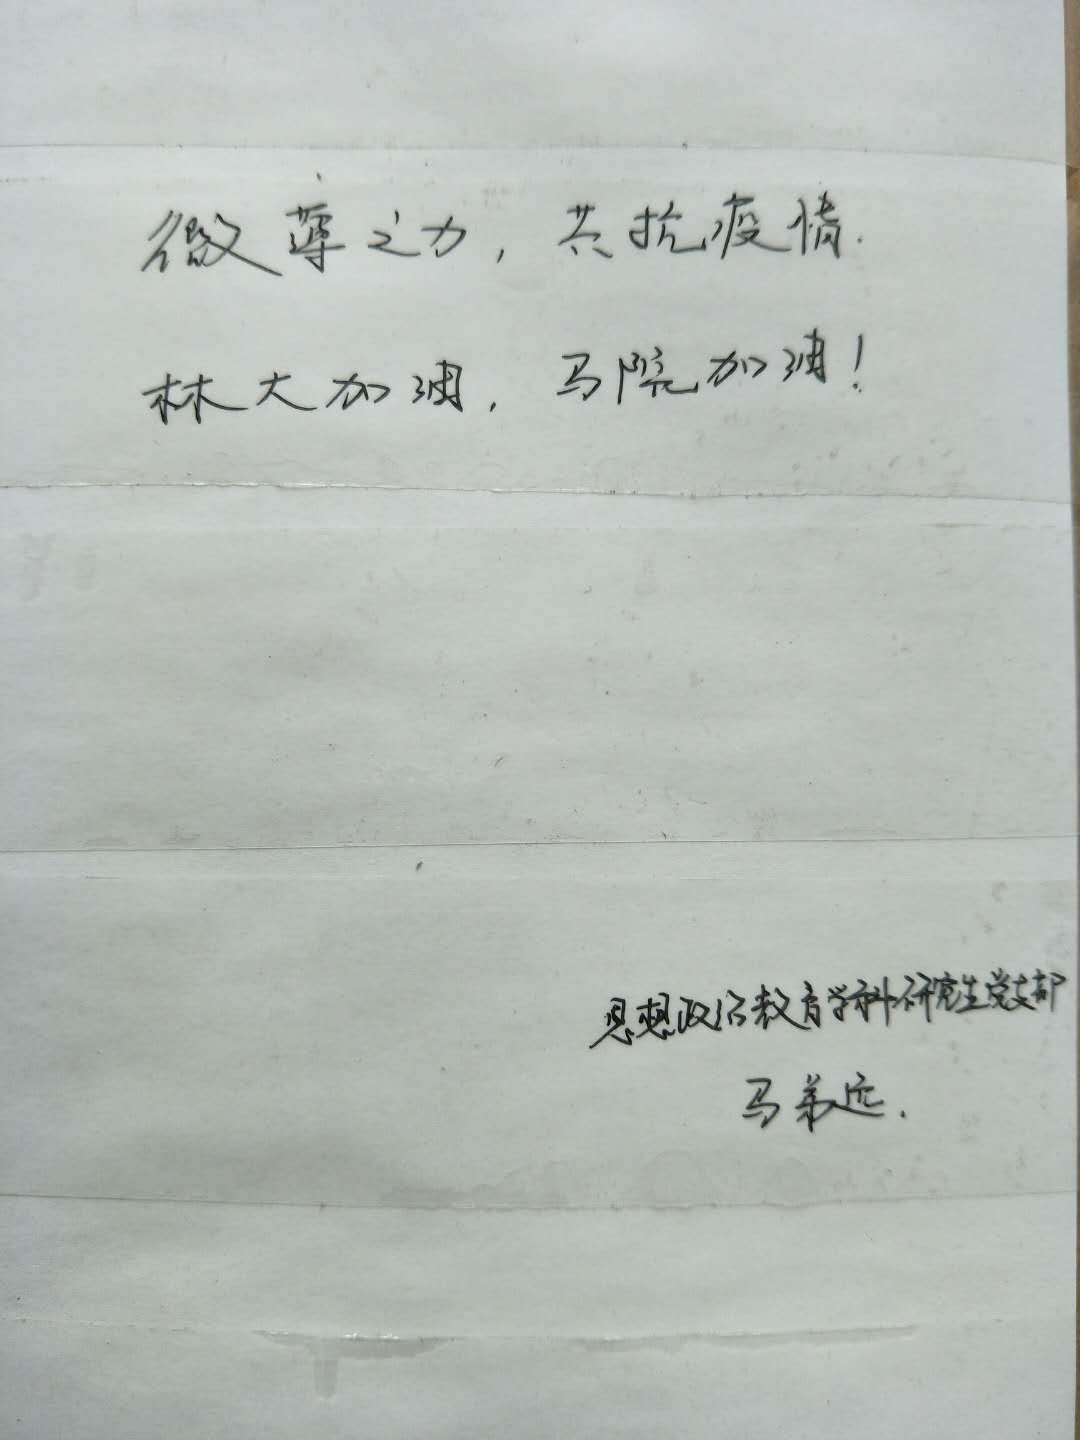 微薄之力，共抗疫情.
林大加油，马院加油！
思想政治教育学科研究生党支部
马弟远.